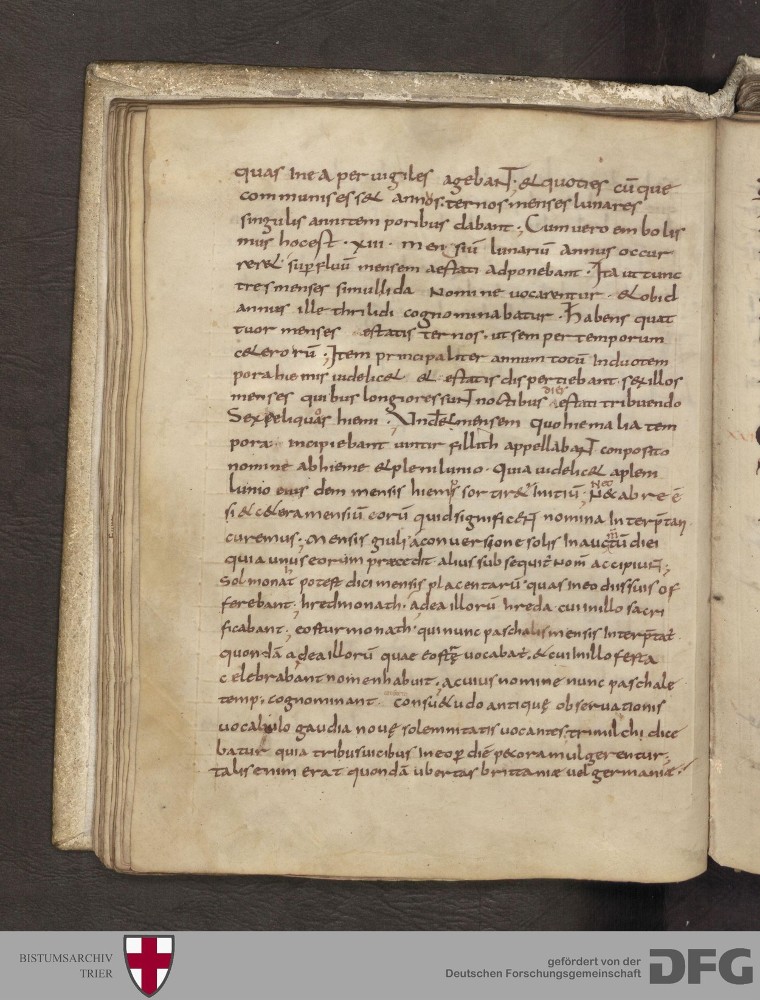 quas in ea pervigiles agebant; et quoties cū que
communis esset annus. ternos menses lunares
singulis anni tem poribus dabant; Cum vero em bolis
mus hoc est · xiii · men siū lunariū annus occur
reret. sup̄fluū mensem aestati adponebant · Ita ut tunc
tres menses simul lida nomine vocarentur · et ob id
annus ille thrilidi cognominabatur · Habens quat
tuor menses estatis ternos. ut semper temporum
cetero rū; Item principaliter annum totū in duo tem
pora hiemis videlicet et estatis dispertiebant. sex illos
menses quibus longiores sunt noctibus dies estati tribuendo
Sex reliquos hiemi. Unde et mensem quo hiemalia tem
pora incipiebant vuintirfillith appellabant conposito
nomine ab hieme et plenilunio. Quia videlicet a plem
lunio eius dem mensis hiemps sortiret initiū. Nec ab re ē
si et cetera mensiū eorū quid significent nomina interp̄tari
curemus; Mensis giuli a conversione solis in auctū diei
quia unus eorum praecedit alius subsequit nom̄ accipiunt;
Sol monat potest dici mensis placentarū quas in eo diis suis of
ferebant; hredmonath · a dea illorū hreda · cui in illo sacri
ficabant; eosturmonath · qui nunc paschalis mensis interp̄tat
quondā a dea illorū quae eostrę vocabat̄. et cui in illo festa
celebrabant nomen habuit; a cuius nomine nunc paschale
temp; cognominant consuetudo antiquę observationis
vocabulo gaudia novę solemnitatis vocantes. trimilchi dice
batur quia tribus vicibus in eo p̄ diē pecora mulgerentur;
talis enim erat quondā ubertas brittaniae vel germaniae;
BISTUMSARCHIV
TRIER
gefördert von der
Deutschen Forschungsgemeinschaft
DFG